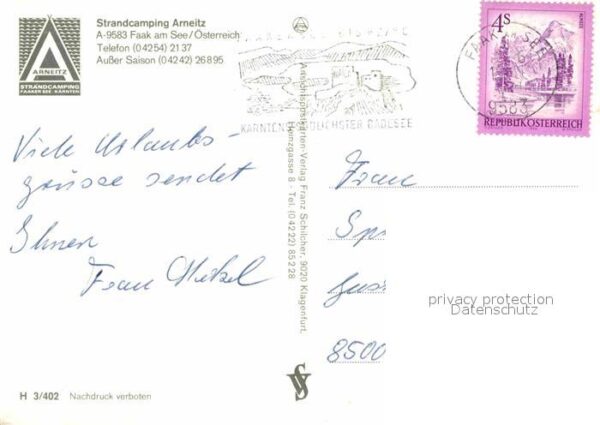 Strandcamping Arneitz
A-9583 Faak am See/Österreich
Telefon (04254) 2137
Außer Saison (04242) 26895
ARNEITZ
STRANDCAMPING
FAAKER SEE · KÄRNTEN
4S
REPUBLIK ÖSTERREICH
FAAK AM SEE
9583
KÄRNTENS SÜDLICHSTER BADESEE
Viele Urlaubs-
grüsse sendet
Ihnen
Frau
Ansichtspostkarten-Verlag Franz Schilcher, 9020 Klagenfurt,
Henzgasse 8 - Tel. (04222) 85228
Frau
8500
privacy protection
Datenschutz
H 3/402 Nachdruck verboten